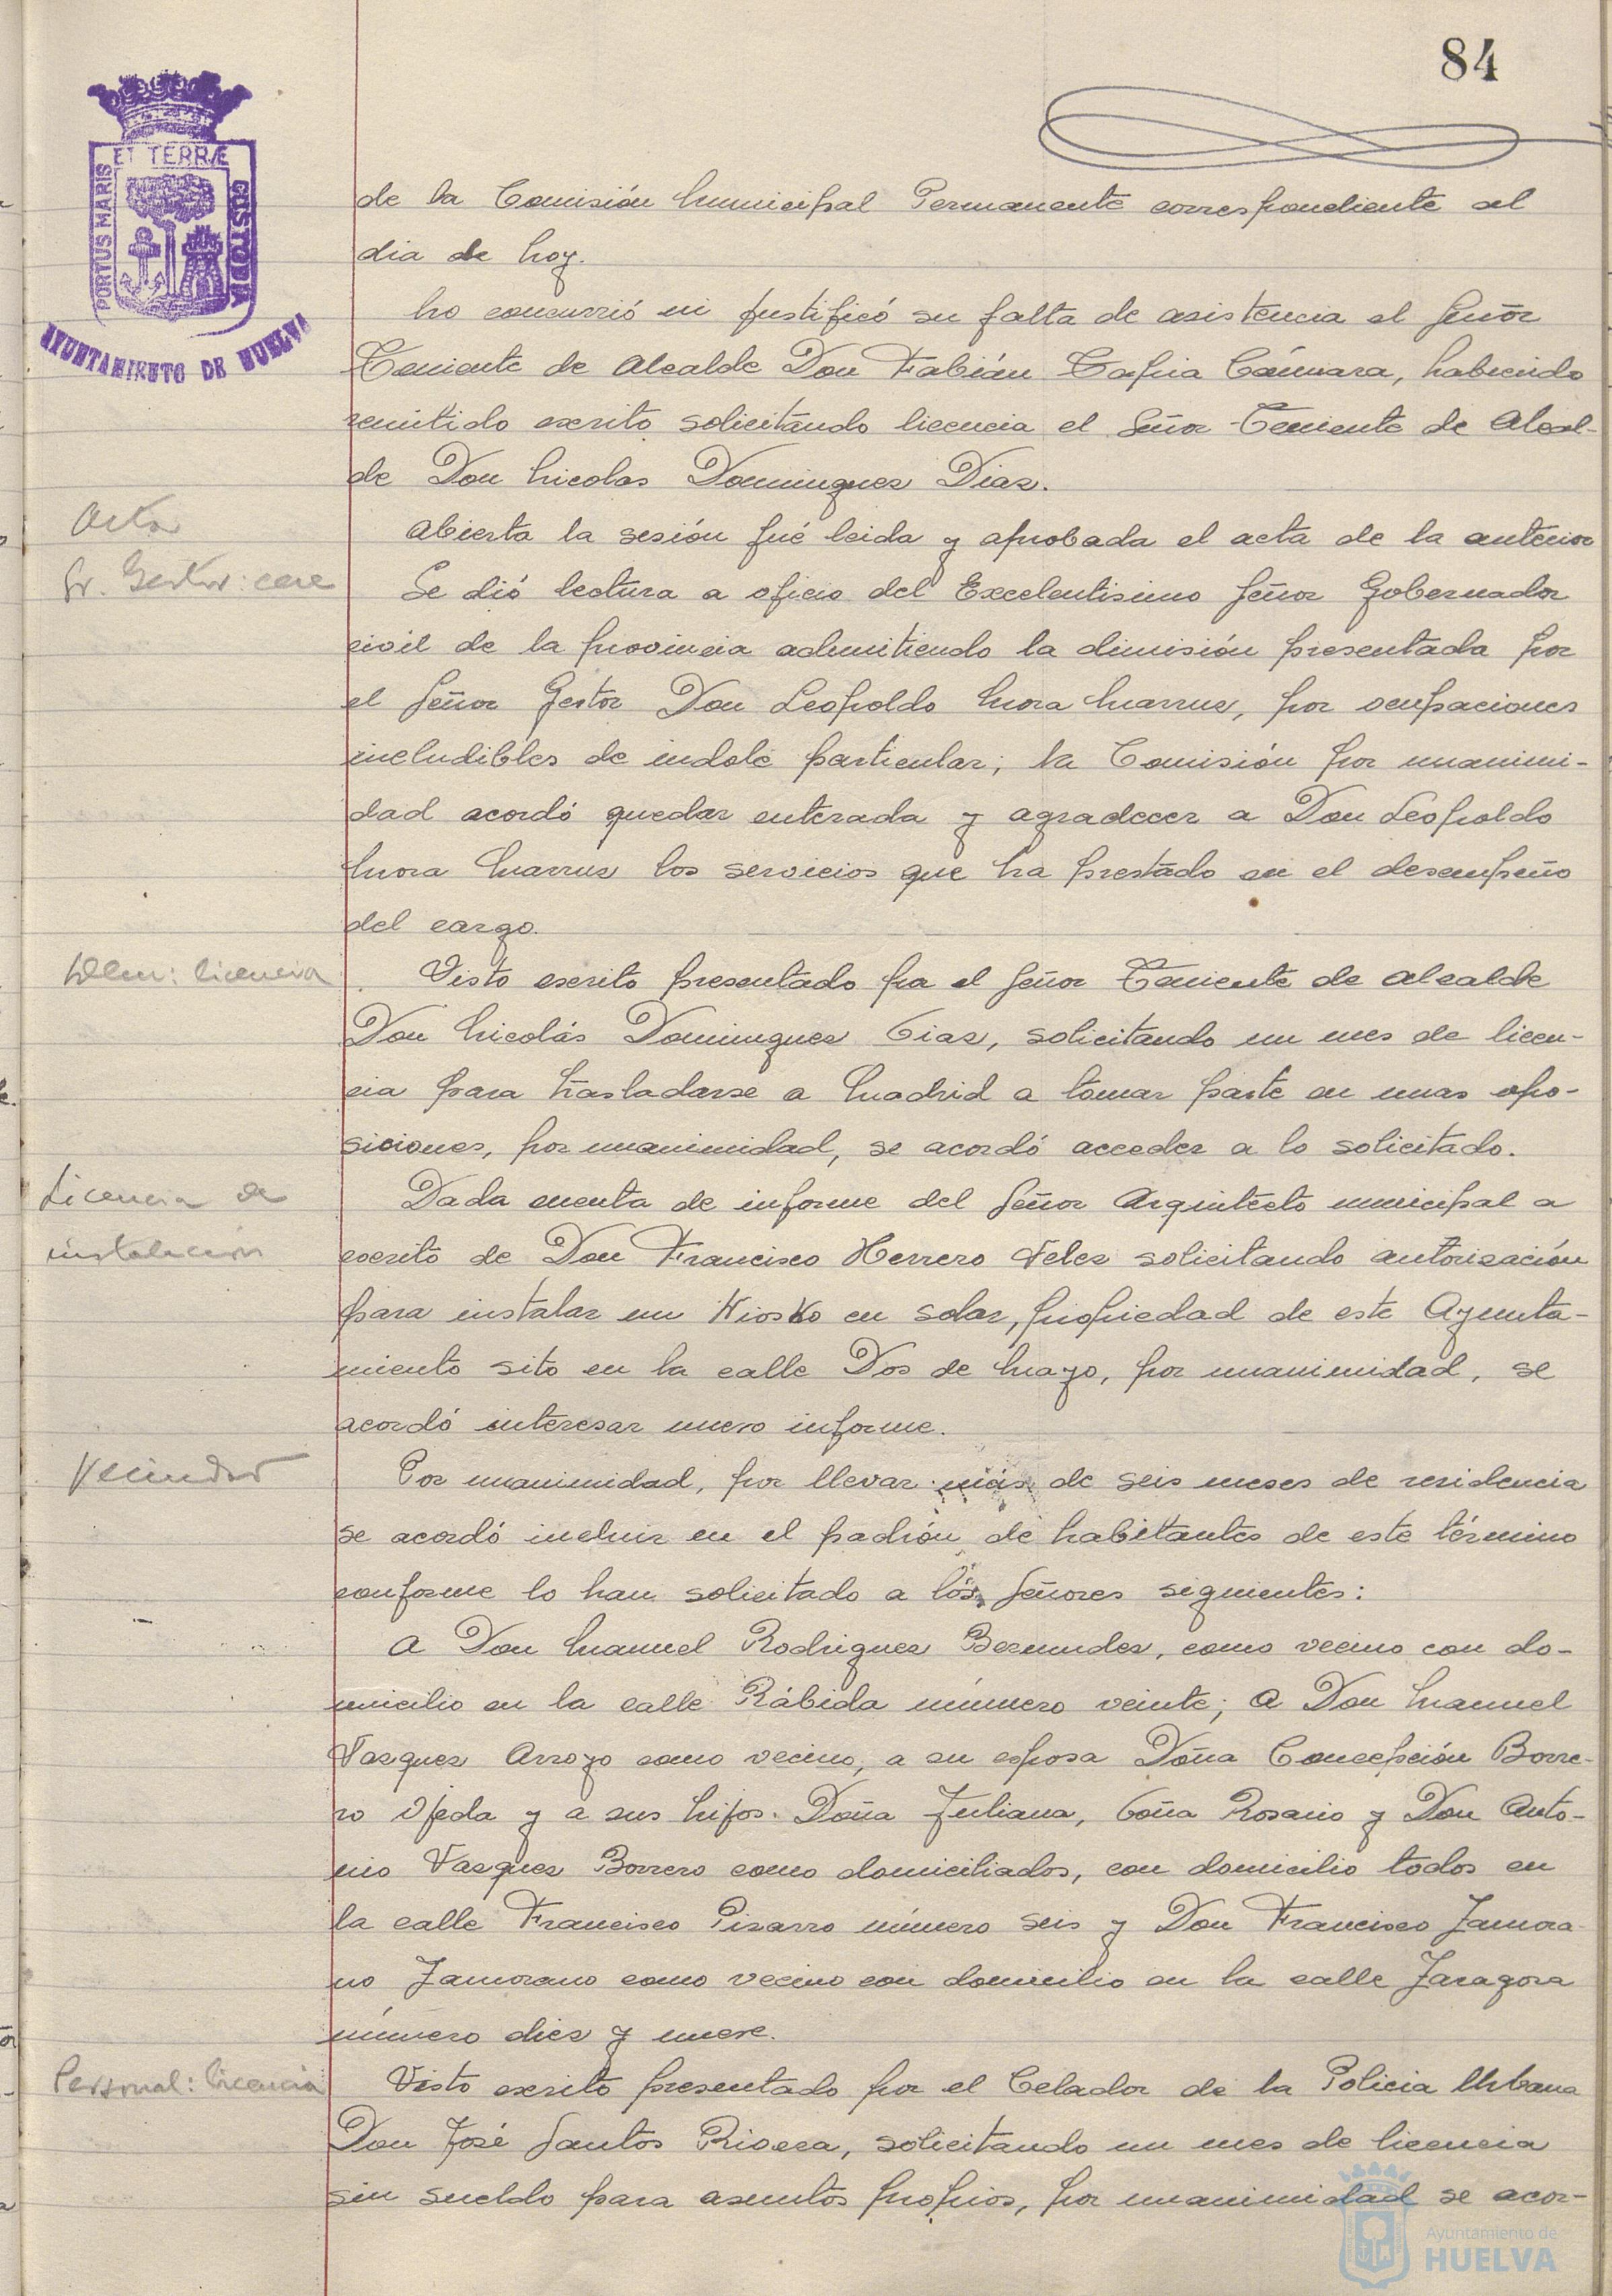 84
ET TERRÆ
PORTUS MARIS
CUSTODIA
AYUNTAMIENTO DE HUELVA
de la Comisión Municipal Permanente correspondiente al
dia de hoy.
No concurrió ni justificó su falta de asistencia el Señor
Teniente de Alcalde Don Fabián Tapia Cámara, habiendo
remitido escrito solicitando licencia el Señor Teniente de Alcal-
de Don Nicolas Dominguez Diaz.
Acta
Abierta la sesión fué leida y aprobada el acta de la anterior
Sr. Gestor: cese
Se dió lectura a oficio del Excelentisimo Señor Gobernador
civil de la provincia admitiendo la dimisión presentada por
el Señor Gestor Don Leopoldo Mora Marruz, por ocupaciones
ineludibles de indole particular; la Comisión por unanimi-
dad acordó quedar enterada y agradecer a Don Leopoldo
Mora Marruz los servicios que ha prestado en el desempeño
del cargo.
Idem: licencia
Visto escrito presentado por el Señor Teniente de Alcalde
Don Nicolás Dominguez Diaz, solicitando un mes de licen-
cia para trasladarse a Madrid a tomar parte en unas opo-
siciones, por unanimidad, se acordó acceder a lo solicitado.
Licencia de
Dada cuenta de informe del Señor Arquitecto municipal a
instalación
escrito de Don Francisco Herrero Velez solicitando autorización
para instalar un Kiosko en solar, propiedad de este Ayunta-
miento sito en la calle Dos de Mayo, por unanimidad, se
acordó interesar nuevo informe.
Vecindad
Por unanimidad, por llevar más de seis meses de residencia
se acordó incluir en el padrón de habitantes de este término
conforme lo han solicitado a los Señores siguientes:
A Don Manuel Rodriguez Bermudez, como vecino con do-
micilio en la calle Rábida número veinte; A Don Manuel
Vazquez Arroyo como vecino, a su esposa Doña Concepción Borre-
ro Ojeda y a sus hijos. Doña Juliana, Doña Rosario y Don Anto-
nio Vazquez Borrero como domiciliados, con domicilio todos en
la calle Francisco Pizarro número seis y Don Francisco Zamora-
no Zamorano como vecino con domicilio en la calle Zaragoza
número diez y nueve.
Personal: licencia
Visto escrito presentado por el Celador de la Policia Urbana
Don José Santos Rivera, solicitando un mes de licencia
sin sueldo para asuntos propios, por unanimidad se acor-
Ayuntamiento de
HUELVA